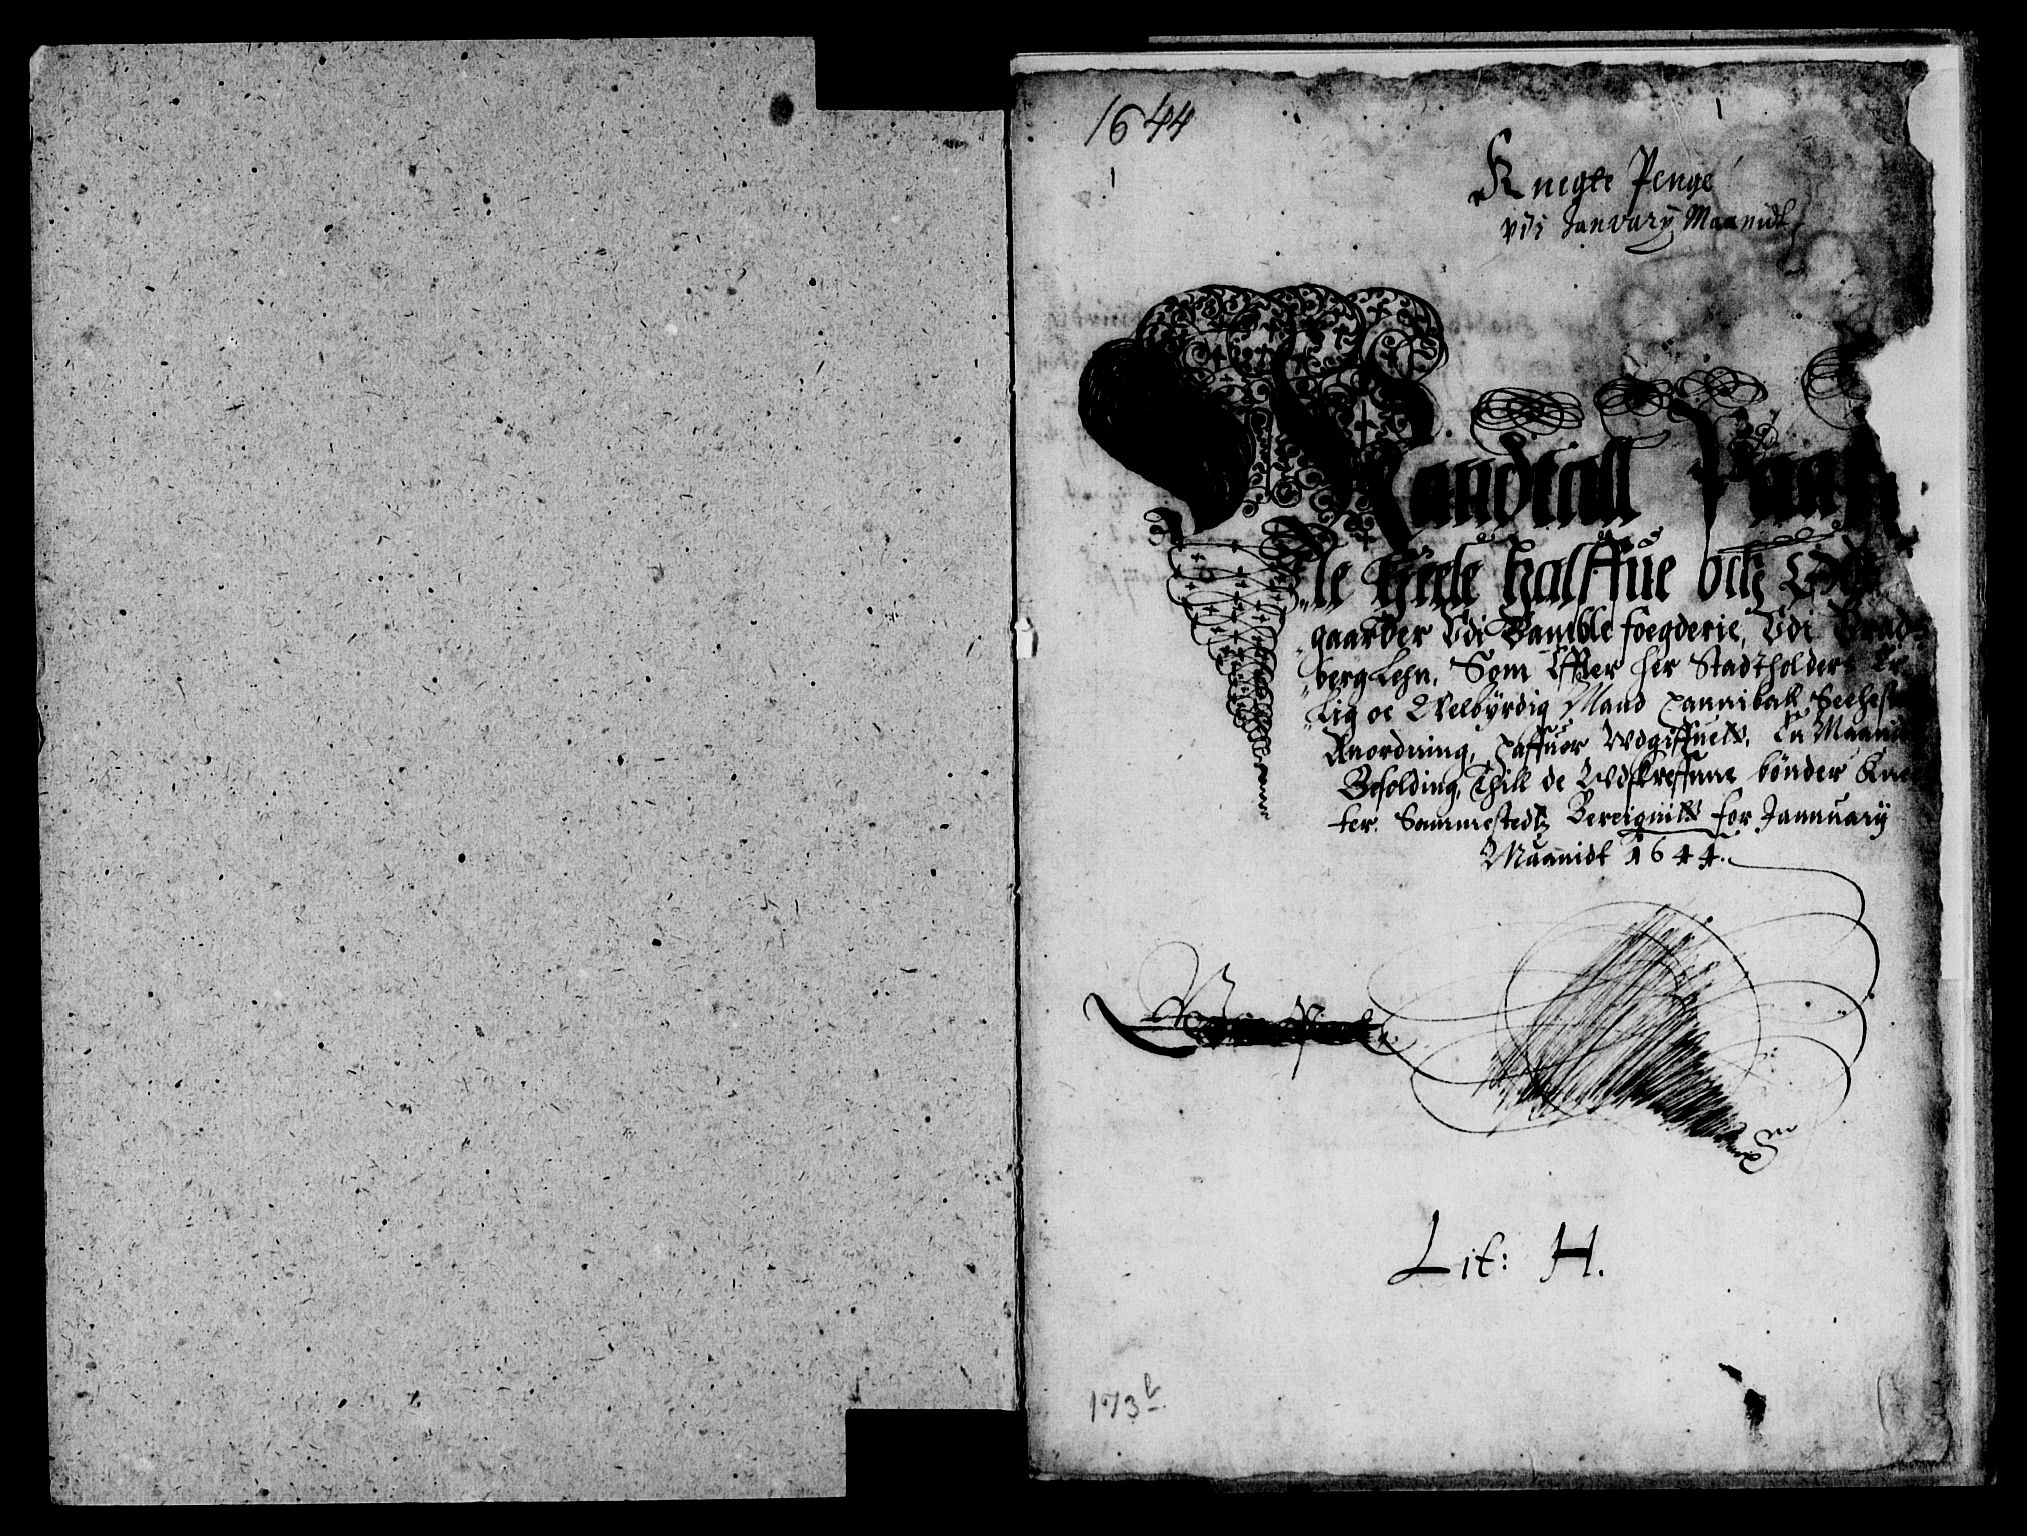 1644
Knegte Penge
vdi January Maanidt
Mandtall Paa
le Heele halffue och Øde
gaarder Vdi Bamble foegderie, Vdi Brads
berg Lehn, Som Effter her Stadtholders Er
lig oc Velbyrdig Mand Hannibal Seehest
Anordning, haffuer Wdgiffuelt, En Maanidt
Besolding, Thill de Wdskreffune bønder Kneg
ter. Sammestedtz Bereignit for Januuary
Maanidt 1644.
Lit: H.
173 b.